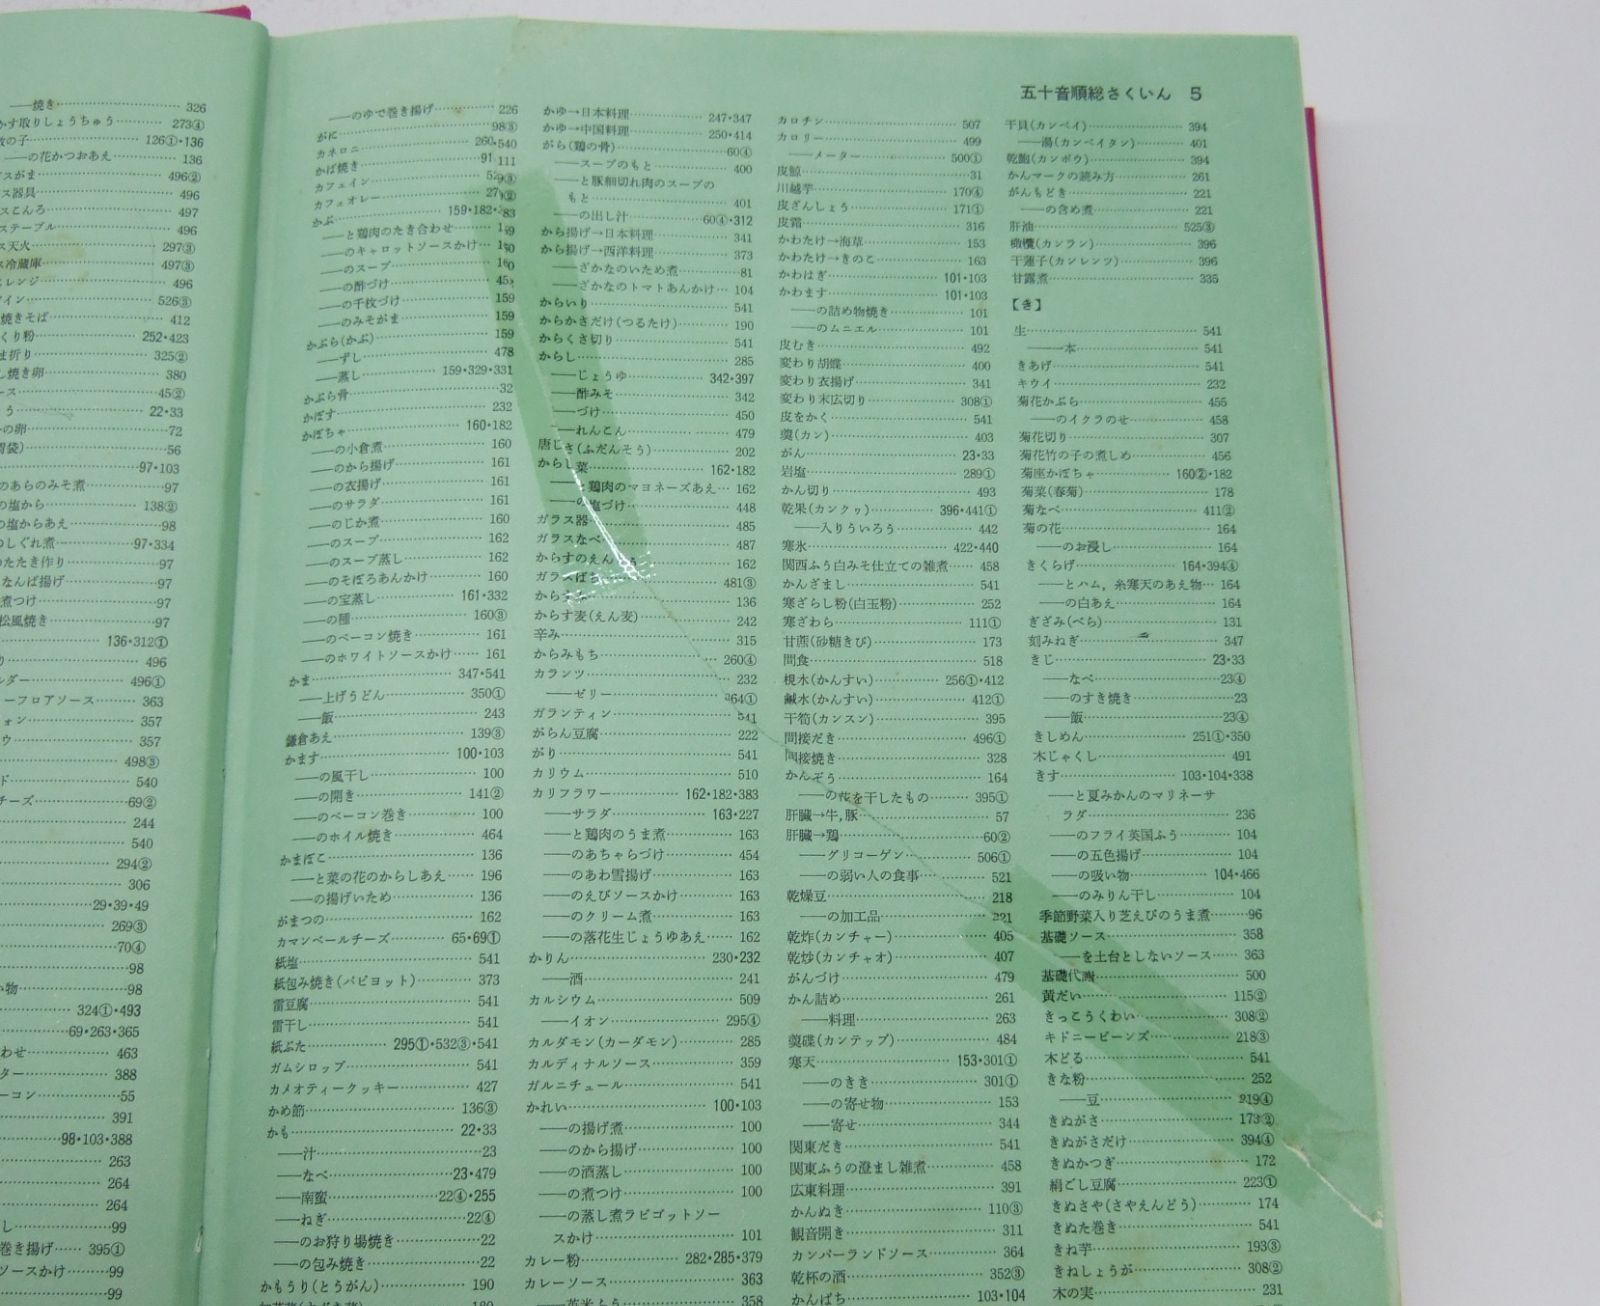 五十音順総さくいん 5
――焼き 326
かす取りしょうちゅう 273④
数の子 126①・136
――の花かつおあえ 136
496②
ス器具 496
スこんろ 497
ステーブル 496
ス天火 297③
ス冷蔵庫 497③
496
526③
焼きそば 412
くり粉 252・423
ま折り 325②
し焼き卵 380
ース 45②
22・33
の卵 72
56
97・103
のあらのみそ煮 97
の塩から 138②
の塩からあえ 98
のしぐれ煮 97・334
のたたき作り 97
なんば揚げ 97
煮つけ 97
松風焼き 97
136・312①
496
ルダー 496①
ーフロアソース 363
357
357
498③
540
チーズ 69②
244
540
294②
306
29・39・49
269③
70④
98
98
324①・493
69・263・365
わせ 463
ター 388
ーコン 55
391
98・103・388
263
264
264
99
巻き揚げ 395①
ソースかけ 99
99
――のゆで巻き揚げ 226
がに 98③
カネロニ 260・540
かば焼き 91・111
カフェイン
カフェオレー
かぶ 159・182・
――と鶏肉のたき合わせ
――のキャロットソースかけ
――のスープ
――の酢づけ
――の千枚づけ 159
――のみそがま 159
かぶら(かぶ) 159
――ずし 478
――蒸し 159・329・331
かぶら骨 32
かぼす 232
かぼちゃ 160・182
――の小倉煮 160
――のから揚げ 161
――の衣揚げ 161
――のサラダ 161
――のじか煮 160
――のスープ 162
――のスープ蒸し 162
――のそぼろあんかけ 160
――の宝蒸し 161・332
――の種 160③
――のベーコン焼き 161
――のホワイトソースかけ 161
かま 347・541
――上げうどん 350①
――飯 243
鎌倉あえ 139③
かます 100・103
――の風干し 100
――の開き 141②
――のベーコン巻き 100
――のホイル焼き 464
かまぼこ 136
――と菜の花のからしあえ 196
――の揚げいため 136
がまつの 162
カマンベールチーズ 65・69①
紙塩 541
紙包み焼き(パピヨット) 373
雷豆腐 541
雷干し 541
紙ぶた 295①・532③・541
ガムシロップ 541
カメオティークッキー 427
かめ節 136③
かも 22・33
――汁 23
――なべ 23・479
――南蛮 22④・255
――ねぎ 22④
――のお狩り場焼き 22
――の包み焼き 22
かもうり(とうがん) 190
かゆ→日本料理 247・347
かゆ→中国料理 250・414
がら(鶏の骨) 60④
――スープのもと 400
――と豚細切れ肉のスープの
もと 401
――の出し汁 60④・312
から揚げ→日本料理 341
から揚げ→西洋料理 373
――ざかなのいため煮 81
――ざかなのトマトあんかけ 104
からいり 541
からかさだけ(つるたけ) 190
からくさ切り 541
からし 285
――じょうゆ 342・397
――酢みそ 342
――づけ 450
――れんこん 479
唐ぢさ(ふだんそう) 202
からし菜 162・182
――と鶏肉のマヨネーズあえ 162
――の塩づけ 448
ガラス器 485
ガラスなべ 487
からすのえんどう 162
ガラスばち 481③
からすみ 136
からす麦(えん麦) 242
辛み 315
からみもち 260④
カランツ 232
――ゼリー 364①
ガランティン 541
がらん豆腐 222
がり 541
カリウム 510
カリフラワー 162・182・383
――サラダ 163・227
――と鶏肉のうま煮 163
――のあちゃらづけ 454
――のあわ雪揚げ 163
――のえびソースかけ 163
――のクリーム煮 163
――の落花生じょうゆあえ 162
かりん 230・232
――酒 241
カルシウム 509
――イオン 295④
カルダモン(カーダモン) 285
カルディナルソース 359
ガルニチュール 541
かれい 100・103
――の揚げ煮 100
――のから揚げ 100
――の酒蒸し 100
――の煮つけ 100
――の蒸し煮ラビゴットソー
スかけ 101
カレー粉 282・285・379
カレーソース 363
――英米ふう 358
カロチン 507
カロリー 499
――メーター 500①
皮鯨 31
川越芋 170④
皮ざんしょう 171①
皮霜 316
かわたけ→海草 153
かわたけ→きのこ 163
かわはぎ 101・103
かわます 101・103
――の詰め物焼き 101
――のムニエル 101
皮むき 492
変わり胡蝶 400
変わり衣揚げ 341
変わり末広切り 308①
皮をかく 541
羹(カン) 403
がん 23・33
岩塩 289①
かん切り 493
乾果(カンクヮ) 396・441①
――入りういろう 442
寒氷 422・440
関西ふう白みそ仕立ての雑煮 458
かんざまし 541
寒ざらし粉(白玉粉) 252
寒ざわら 111①
甘蔗(砂糖きび) 173
間食 518
梘水(かんすい) 256①・412
鹹水(かんすい) 412①
干筍(カンスン) 395
間接だき 496①
間接焼き 328
かんぞう 164
――の花を干したもの 395①
肝臓→牛,豚 57
肝臓→鶏 60②
――グリコーゲン 506①
――の弱い人の食事 521
乾燥豆 218
――の加工品 221
乾炸(カンチャー) 405
乾炒(カンチャオ) 407
がんづけ 479
かん詰め 261
――料理 263
羹碟(カンテップ) 484
寒天 153・301①
――のきき 301①
――の寄せ物 153
――寄せ 344
関東だき 541
関東ふうの澄まし雑煮 458
広東料理 391
かんぬき 110③
観音開き 311
カンバーランドソース 364
乾杯の酒 352③
かんぱち 103・104
干貝(カンペイ) 394
――湯(カンペイタン) 401
乾鮑(カンポウ) 394
かんマークの読み方 261
がんもどき 221
――の含め煮 221
肝油 525③
橄欖(カンラン) 396
干蓮子(カンレンツ) 396
甘露煮 335
【き】
生 541
――一本 541
きあげ 541
キウイ 232
菊花かぶら 455
――のイクラのせ 458
菊花切り 307
菊花竹の子の煮しめ 456
菊座かぼちゃ 160②・182
菊菜(春菊) 178
菊なべ 411②
菊の花 164
――のお浸し 164
きくらげ 164・394④
――とハム,糸寒天のあえ物 164
――の白あえ 164
ぎざみ(べら) 131
刻みねぎ 347
きじ 23・33
――なべ 23④
――のすき焼き 23
――飯 23④
きしめん 251①・350
木じゃくし 491
きす 103・104・338
――と夏みかんのマリネーサ
ラダ 236
――のフライ英国ふう 104
――の五色揚げ 104
――の吸い物 104・466
――のみりん干し 104
季節野菜入り芝えびのうま煮 96
基礎ソース 358
――を土台としないソース 363
基礎代謝 500
黄だい 115②
きっこうくわい 308②
キドニービーンズ 218③
木どる 541
きな粉 252
――豆 219④
きぬがさ 173②
きぬがさだけ 394④
きぬかつぎ 172
絹ごし豆腐 223①
きぬさや(さやえんどう) 174
きぬた巻き 541
きね芋 193③
きねしょうが 308②
木の実 231